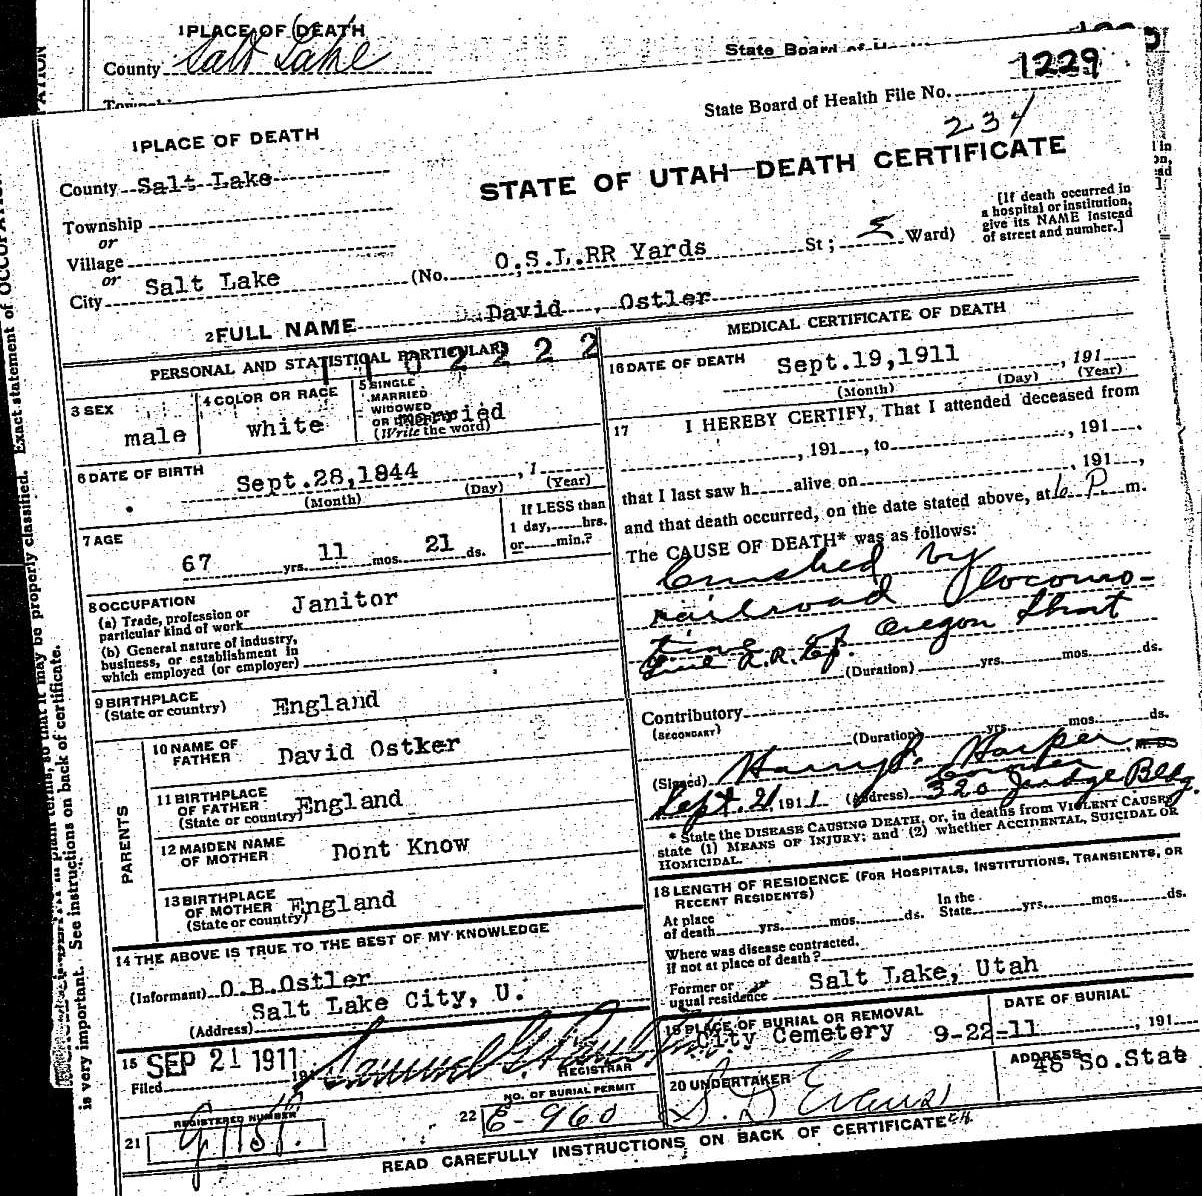 1 PLACE OF DEATH
County Salt Lake
State Board of
1229
State Board of Health File No.
234
1 PLACE OF DEATH
County Salt Lake
STATE OF UTAH—DEATH CERTIFICATE
Township
or
Village
or
City Salt Lake (No. O.S.L.RR Yards St; 5 Ward)
[If death occurred in
a hospital or institution,
give its NAME instead
of street and number.]
2 FULL NAME David Ostler
PERSONAL AND STATISTICAL PARTICULARS
1 1 0 2 2 2 2
3 SEX
male
4 COLOR OR RACE
white
5 SINGLE
MARRIED
WIDOWED
OR DIVORCED
(Write the word)
married
6 DATE OF BIRTH
Sept.28,1844 , 1
(Month) (Day) (Year)
7 AGE
67 yrs. 11 mos. 21 ds.
If LESS than
1 day, hrs.
or min.?
8 OCCUPATION
(a) Trade, profession or
particular kind of work
Janitor
(b) General nature of industry,
business, or establishment in
which employed (or employer)
9 BIRTHPLACE
(State or country)
England
10 NAME OF
FATHER
David Ostker
11 BIRTHPLACE
OF FATHER
(State or country)
England
12 MAIDEN NAME
OF MOTHER
Dont Know
13 BIRTHPLACE
OF MOTHER
(State or country)
England
PARENTS
14 THE ABOVE IS TRUE TO THE BEST OF MY KNOWLEDGE
(Informant) O.B.Ostler
Salt Lake City, U.
(Address)
15 SEP 21 1911
Filed 191
REGISTRAR
REGISTERED NUMBER
21
NO. OF BURIAL PERMIT
22 E-960
MEDICAL CERTIFICATE OF DEATH
16 DATE OF DEATH
Sept.19,1911 , 191
(Month) (Day) (Year)
17 I HEREBY CERTIFY, That I attended deceased from
, 191 , to , 191 .
that I last saw h alive on , 191 ,
and that death occurred, on the date stated above, at 6 P. m.
The CAUSE OF DEATH* was as follows:
Crushed by
railroad locomo-
tive of Oregon Short
Line R.R. Co.
(Duration) yrs. mos. ds.
Contributory
(SECONDARY)
(Duration) yrs. mos. ds.
(Signed) Harry S. Harper M.D.
Coroner
Sept. 21, 1911 (Address) 320 Judge Bldg.
* State the DISEASE CAUSING DEATH, or, in deaths from VIOLENT CAUSES,
state (1) MEANS OF INJURY; and (2) whether ACCIDENTAL, SUICIDAL OR
HOMICIDAL.
18 LENGTH OF RESIDENCE (FOR HOSPITALS, INSTITUTIONS, TRANSIENTS, OR
RECENT RESIDENTS)
At place
of death yrs. mos. ds.
In the
State yrs. mos. ds.
Where was disease contracted,
if not at place of death?
Former or
usual residence
Salt Lake, Utah
19 PLACE OF BURIAL OR REMOVAL
City Cemetery
DATE OF BURIAL
9-22-11 , 191
20 UNDERTAKER
S. D Evans
ADDRESS
48 So.State
READ CAREFULLY INSTRUCTIONS ON BACK OF CERTIFICATE
Exact statement of OCCUPATION
in plain terms, so that it may be properly classified.
is very important. See instructions on back of certificate.